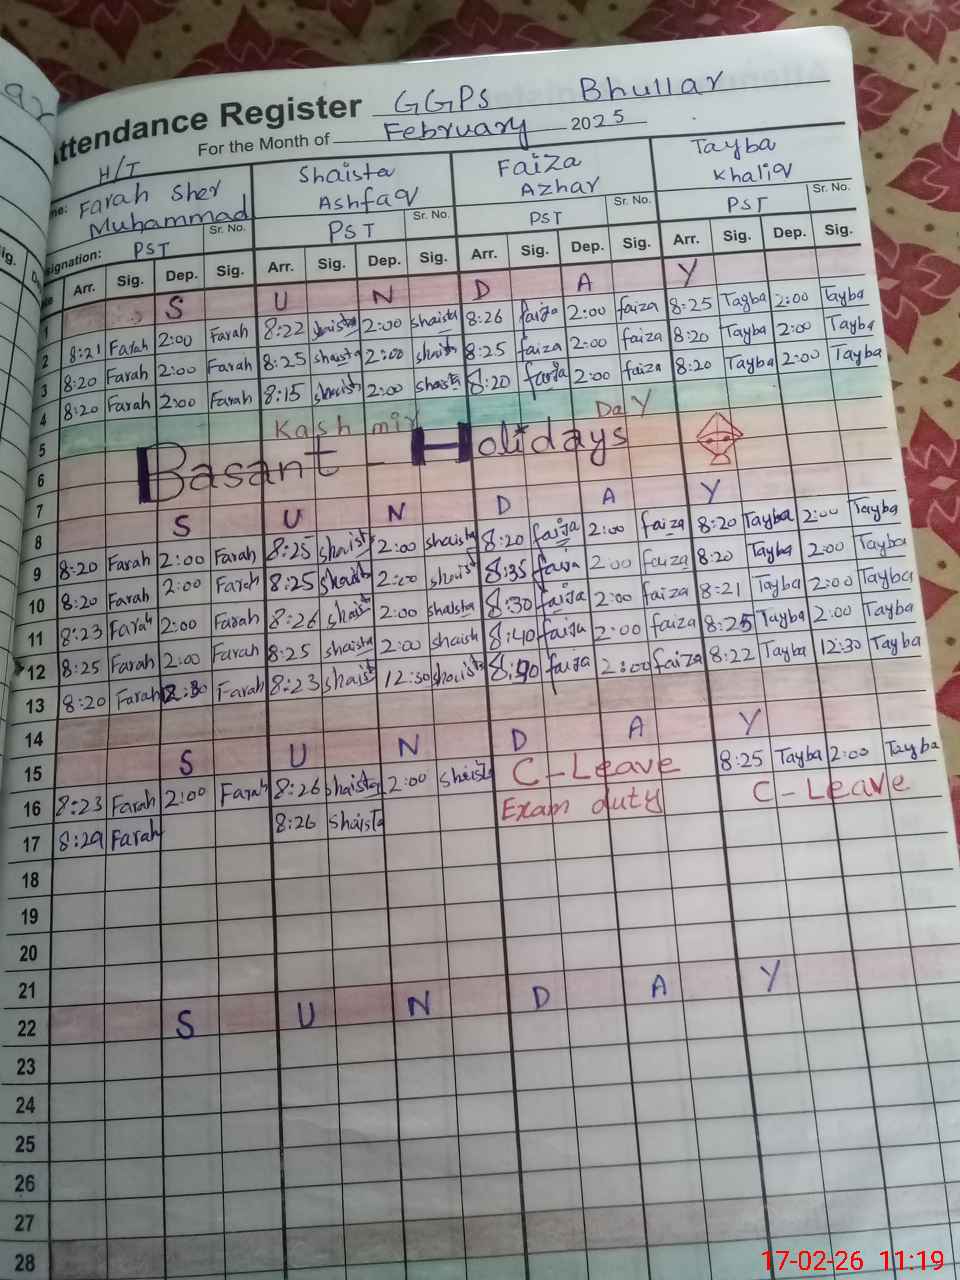 Attendance Register GGPS Bhullar
For the Month of February 2025
H/T
Farah Sher Muhammad Shaista Ashfaq Faiza Azhar Tayba Khaliq
Designation: PST Sr. No. PST Sr. No. PST Sr. No. PST Sr. No.
Arr. Sig. Dep. Sig. Arr. Sig. Dep. Sig. Arr. Sig. Dep. Sig. Arr. Sig. Dep. Sig.
1 S U N D A Y
2 8:21 Farah 2:00 Farah 8:22 shaista 2:00 shaista 8:26 faiza 2:00 faiza 8:25 Tayba 2:00 Tayba
3 8:20 Farah 2:00 Farah 8:25 shaista 2:00 shaist 8:25 faiza 2:00 faiza 8:20 Tayba 2:00 Tayba
4 8:20 Farah 2:00 Farah 8:15 shaist 2:00 shasta 8:20 faiza 2:00 faiza 8:20 Tayba 2:00 Tayba
5 Kashmir Day
6 Basant - Holidays
7
8 S U N D A Y
9 8:20 Farah 2:00 Farah 8:25 shaist 2:00 shaista 8:20 faiza 2:00 faiza 8:20 Tayba 2:00 Tayba
10 8:20 Farah 2:00 Farah 8:25 shaist 2:00 shaist 8:35 faiza 2:00 faiza 8:20 Tayba 2:00 Tayba
11 8:23 Farah 2:00 Farah 8:26 shaist 2:00 shaista 8:30 faiza 2:00 faiza 8:21 Tayba 2:00 Tayba
12 8:25 Farah 2:00 Farah 8:25 shaista 2:00 shaish 8:40 faiza 2:00 faiza 8:25 Tayba 2:00 Tayba
13 8:20 Farah Farah 8:23 shaist 12:30 shaista faiza 2:00 faiza 8:22 Tayba 12:30 Tayba
14
15 S U N D A Y
16 8:23 Farah 2:00 Farah 8:26 shaista 2:00 shaista C-Leave 8:25 Tayba 2:00 Tayba
17 8:29 Farah 8:26 shaista Exam duty C-Leave
18
19
20
21
22 S U N D A Y
23
24
25
26
27
28
17-02-26 11:19